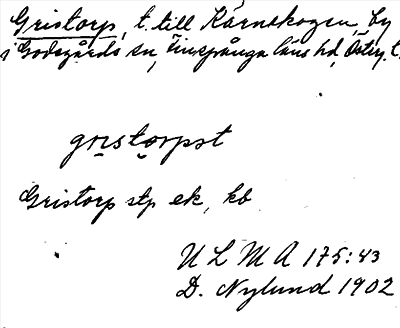 Gristorp, t. till Kärnskogen, by
i Godegårds sn, Finspånga läns hd, Österg.
gristorpst
Gristorp stp ek, kb
ULMA 175:43
D. Nylund 1902